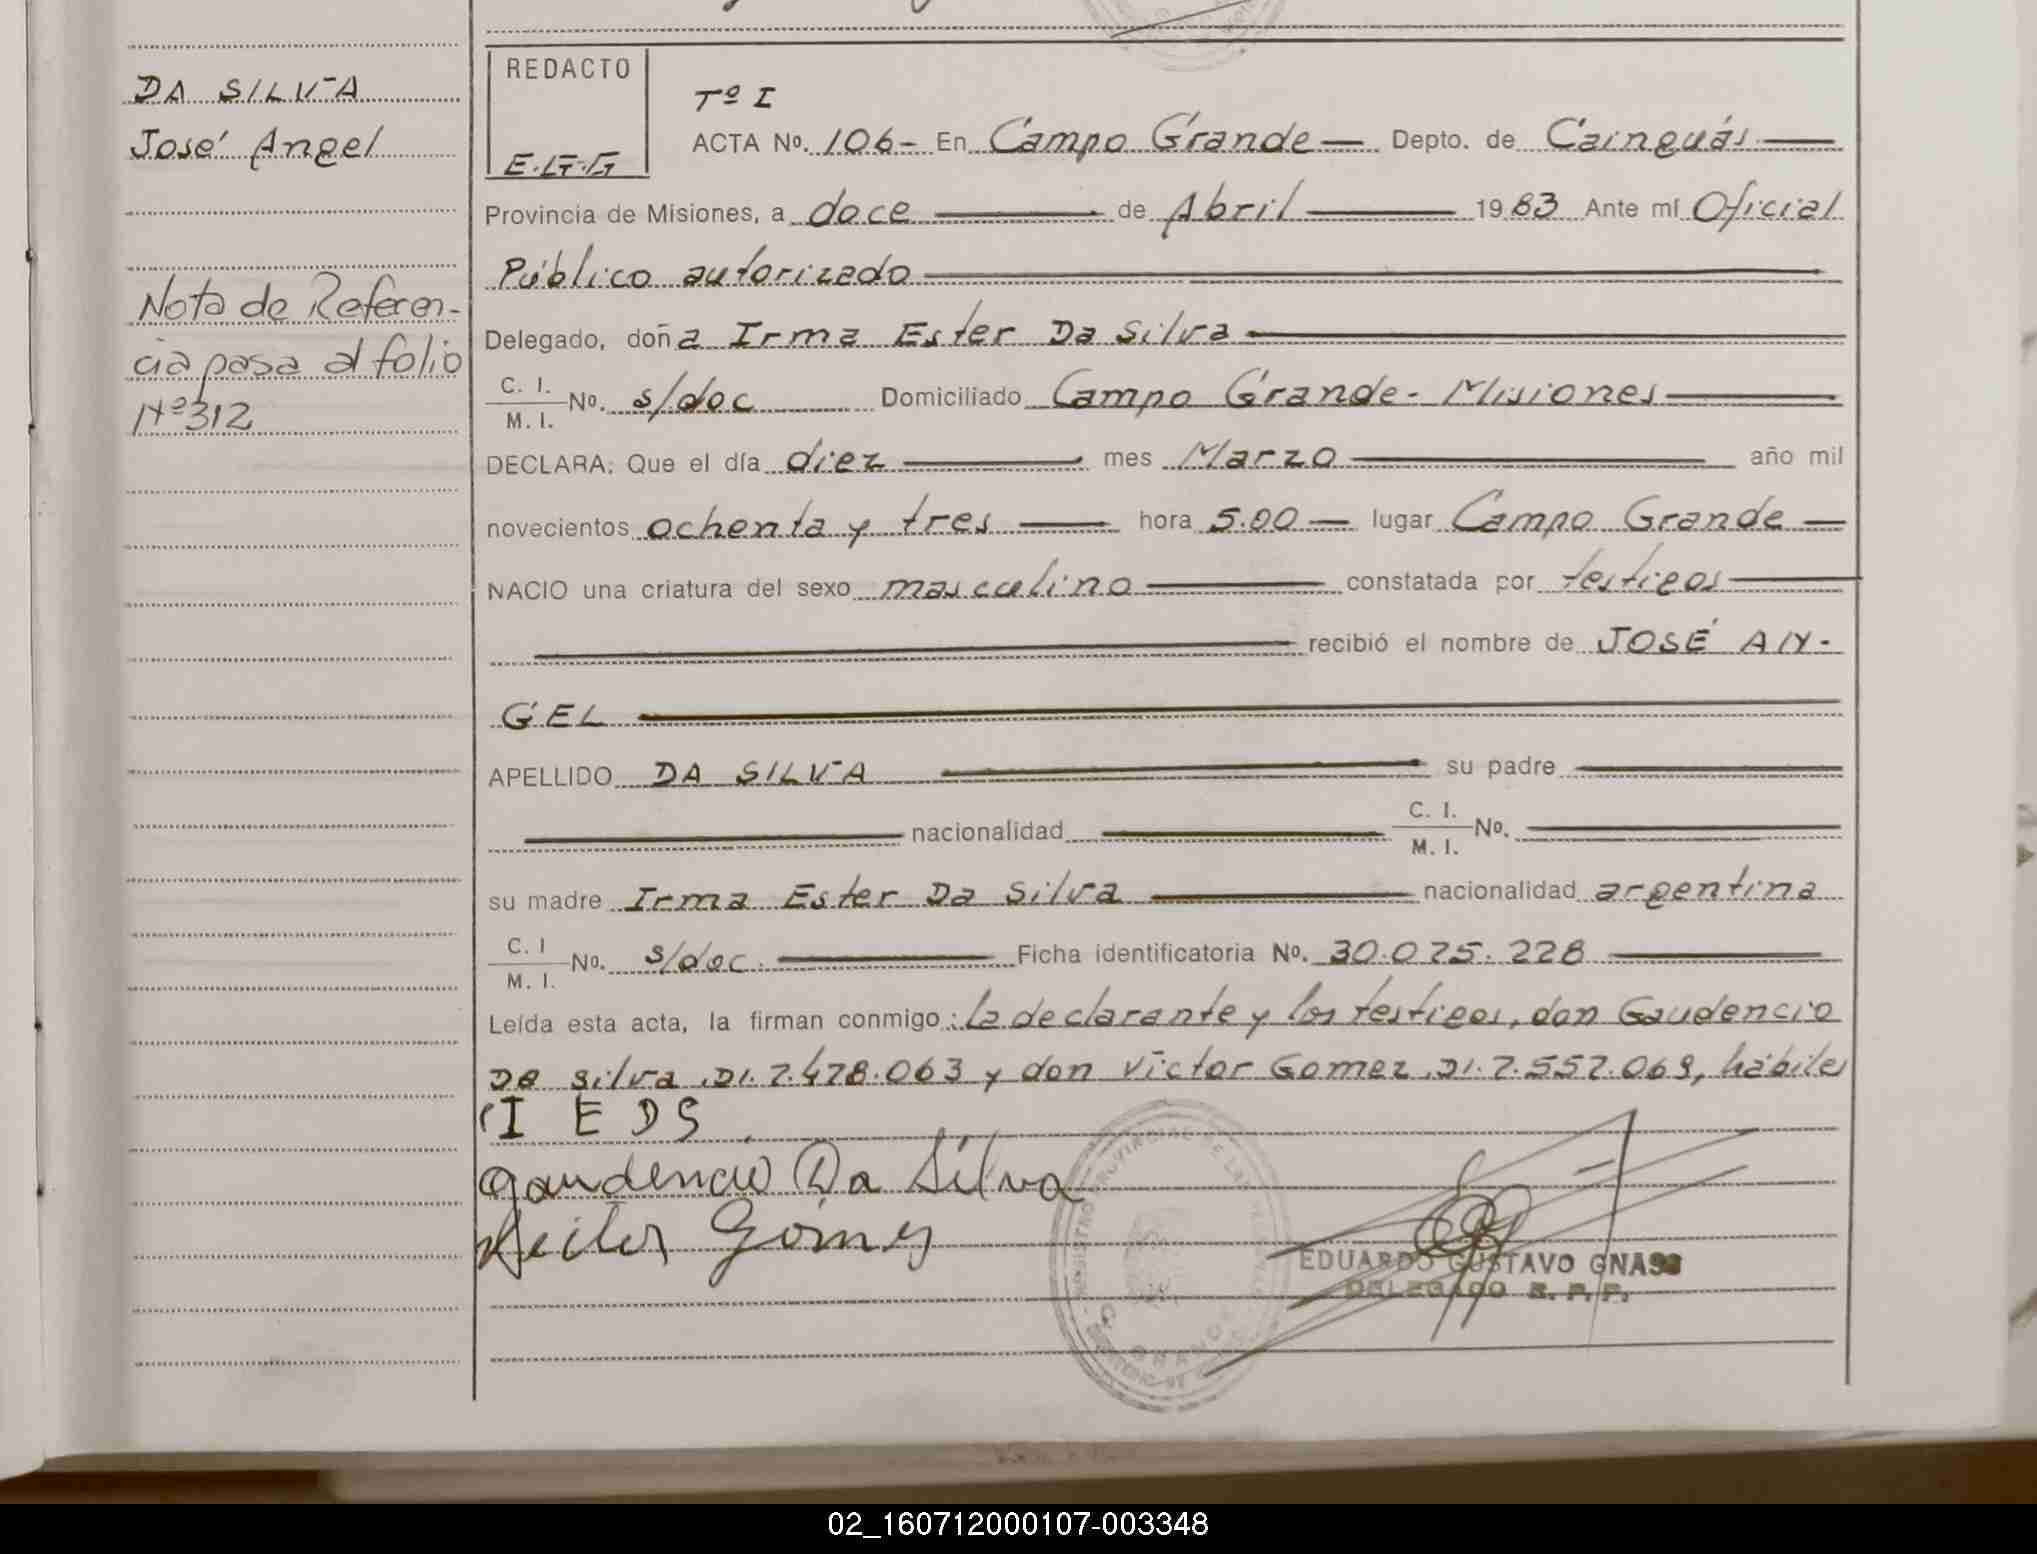 DA SILVA
José Angel
Nota de Referen-
cia pasa al folio
Nº 312
REDACTO
E.G.G
Tº I
ACTA No. 106- En Campo Grande — Depto. de Cainguás —
Provincia de Misiones, a doce — de Abril — 1983 Ante mí Oficial
Público autorizado —
Delegado, doña Irma Ester Da Silva —
C. I.
M. I. No. s/doc Domiciliado Campo Grande - Misiones —
DECLARA: Que el día diez — mes Marzo — año mil
novecientos ochenta y tres — hora 5.00 — lugar Campo Grande —
NACIO una criatura del sexo masculino — constatada por testigos —
— recibió el nombre de JOSÉ AN-
GEL —
APELLIDO DA SILVA — su padre —
— nacionalidad — C. I.
M. I. No. —
su madre Irma Ester Da Silva — nacionalidad argentina
C. I
M. I. No. s/doc. — Ficha identificatoria No. 30.075.228 —
Leída esta acta, la firman conmigo: la declarante y los testigos, don Gaudencio
Da Silva, DI. 7.478.063 y don Victor Gomez, DI. 7.557.069, hábiles
I E D S
Gaudencio Da Silva
Gómez
EDUARDO GUSTAVO GNASS
DELEGADO R. P. P.
REGISTRO PROVINCIAL DE LAS PERSONAS
C. GRANDE
02_160712000107-003348